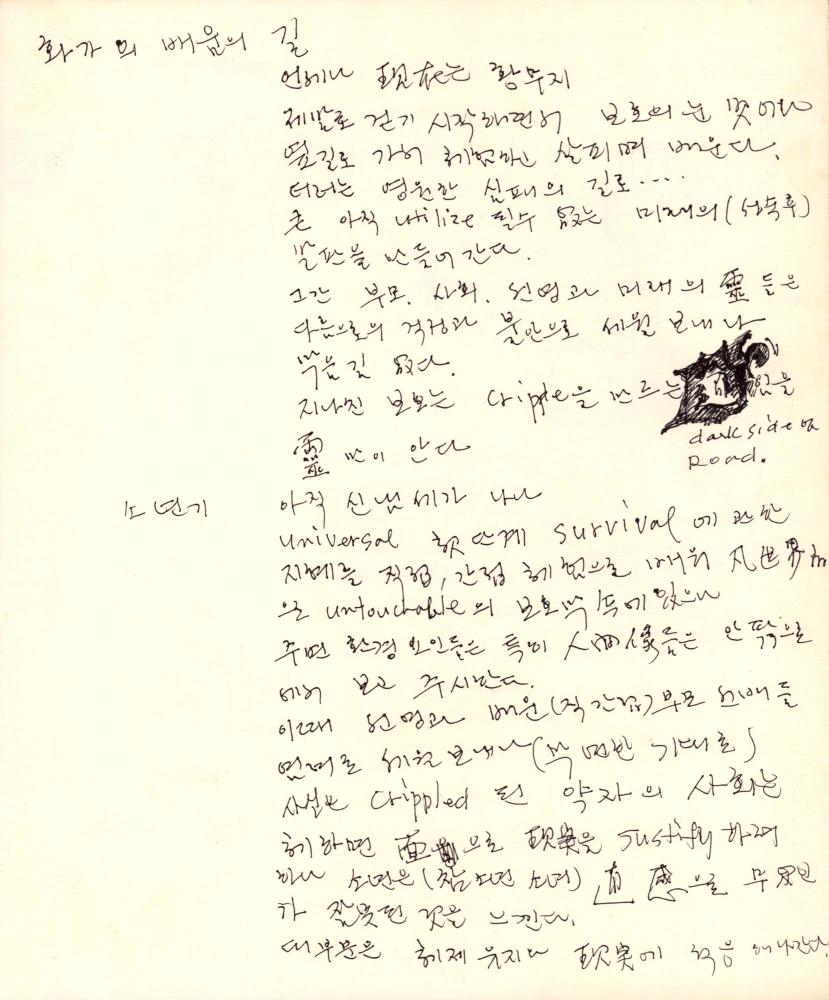 화가의 배움의 길
언제나 現在는 황무지
제발로 걷기 시작하면서 보호의 눈 벗어나
옆길로 가서 체험하고 살피며 배운다.
더러는 영원한 실패의 길로....
큰 아직 utilize 될수 없는 미래의(성숙후)
발판을 만들어 간다.
그간 부모, 사회, 선영과 미래의 靈들은
다음으로의 걱정과 불안으로 세월 보내나
막을길 없다.
지나친 보호는 cripple을 만드는
dark side of
Road.
靈만이 안다
소년기
아직 신념세가 나나
universal 첫단계 survival에 관한
지혜를 직접, 간접 체험으로 배워 凡世界的
으로 untouchable의 보호막 속에 있으나
주변 환경 요인들은 특히 人間像들은 안팎으로
에서 보고 주시한다.
이때 선영과 배운(직간접)부모 선배들
염려로 세월 보내나(막연한 기대로)
사실은 Crippled 된 약자의 사회는
체하면 으로 現実을 Justify 하려
하나 소년은(참소년 소녀) 直感으로 무엇인
가 잘못된 것을 느낀다.
대부분은 체제 유지나 現実에 적응해나간다.